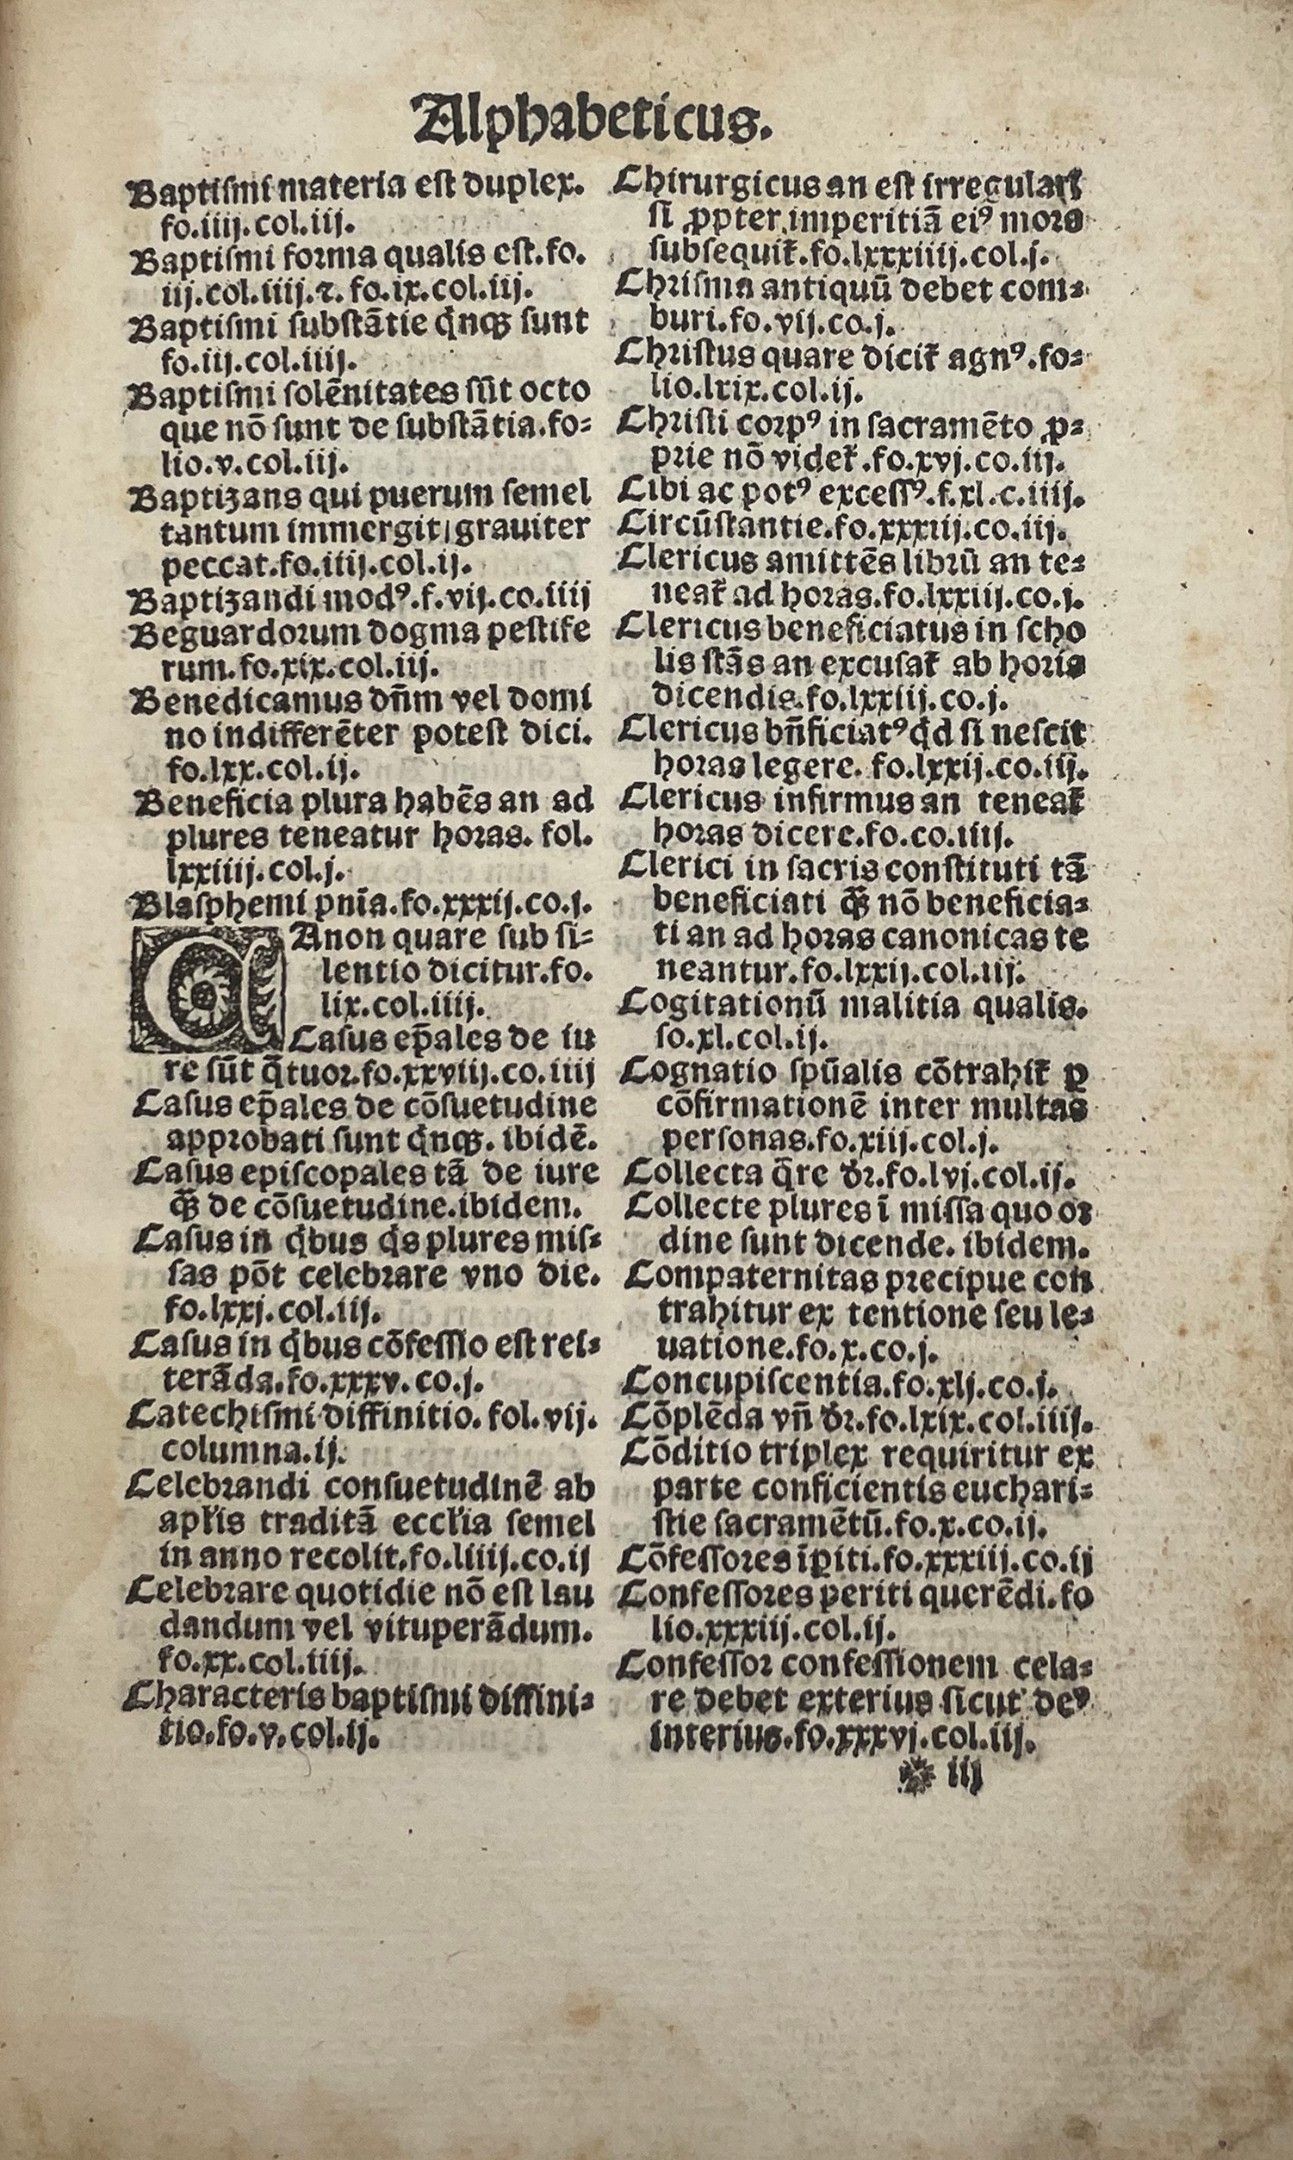 Alphabeticus.
Baptismi materia est duplex.
fo.iiij.col.iij.
Baptismi forma qualis est.fo.
iij.col.iiij.⁊.fo.ix.col.iij.
Baptismi substãtie q̇nqꝫ sunt
fo.iij.col.iiij.
Baptismi solẽnitates sũt octo
que nõ sunt de substãtia.fo⸗
lio.v.col.iij.
Baptizans qui puerum semel
tantum immergit/grauiter
peccat.fo.iiij.col.ij.
Baptizandi modꝰ.f.vij.co.iiij
Beguardorum dogma pestife
rum.fo.xix.col.iij.
Benedicamus dñm vel domi
no indifferẽter potest dici.
fo.lxx.col.ij.
Beneficia plura habẽs an ad
plures teneatur horas. fol.
lxxiiij.col.j.
Blasphemi pnĩa.fo.xxxij.co.j.
CAnon quare sub si⸗
lentio dicitur.fo.
lix.col.iiij.
Casus ep̃ales de iu
re sũt q̃tuor.fo.xxviij.co.iiij
Casus ep̃ales de cõsuetudine
approbati sunt q̇nqꝫ. ibidẽ.
Casus episcopales tã de iure
q̃ꝫ de cõsuetudine.ibidem.
Casus in q̇bus q̇s plures mis⸗
sas põt celebrare vno die.
fo.lxxj.col.iij.
Casus in q̇bus cõfessio est rei⸗
terãda.fo.xxxv.co.j.
Catechismi diffinitio. fol.vij.
columna.ij.
Celebrandi consuetudinẽ ab
apl'is traditã eccl'ia semel
in anno recolit.fo.liiij.co.ij
Celebrare quotidie nõ est lau
dandum vel vituperãdum.
fo.xx.col.iiij.
Characteris baptismi diffini⸗
tio.fo.v.col.ij.
Chirurgicus an est irregularis
si ꝓpter imperitiã eiꝰ mors
subsequit᷑.fo.lxxxiiij.col.j.
Chrisma antiquũ debet com⸗
buri.fo.vij.co.j.
Christus quare dicit᷑ agnꝰ.fo⸗
lio.lxix.col.ij.
Christi corpꝰ in sacramẽto ꝓ⸗
prie nõ videt᷑.fo.xvj.co.iij.
Cibi ac potꝰ excessꝰ.f.xl.c.iiij.
Circũstantie.fo.xxxiij.co.iij.
Clericus amittẽs librũ an te⸗
neat᷑ ad horas.fo.lxxiij.co.j.
Clericus beneficiatus in scho
lis stãs an excusat᷑ ab horis
dicendis.fo.lxxiij.co.j.
Clericus bñficiatꝰ q̇d si nescit
horas legere. fo.lxxij.co.iij.
Clericus infirmus an teneat᷑
horas dicere.fo.co.iiij.
Clerici in sacris constituti tã
beneficiati q̃ꝫ nõ beneficia⸗
ti an ad horas canonicas te
neantur.fo.lxxij.col.iij.
Cogitationũ malitia qualis.
fo.xl.col.ij.
Cognatio spũalis cõtrahit᷑ ꝑ
cõfirmationẽ inter multas
personas.fo.xiij.col.j.
Collecta q̃re dr̃.fo.lvj.col.ij.
Collecte plures ĩ missa quo or
dine sunt dicende. ibidem.
Compaternitas precipue con
trahitur ex tentione seu le⸗
uatione.fo.x.co.j.
Concupiscentia.fo.xlj.co.j.
Cõplẽda vñ dr̃.fo.lxix.col.iiij.
Cõditio triplex requiritur ex
parte conficientis euchari⸗
stie sacramẽtũ.fo.x.co.ij.
Cõfessores ĩꝑiti.fo.xxxiij.co.ij
Confessores periti querẽdi.fo
lio.xxxiij.col.ij.
Confessor confessionem cela⸗
re debet exterius sicut deꝰ
interius.fo.xxxvj.col.iij.
❋ iij